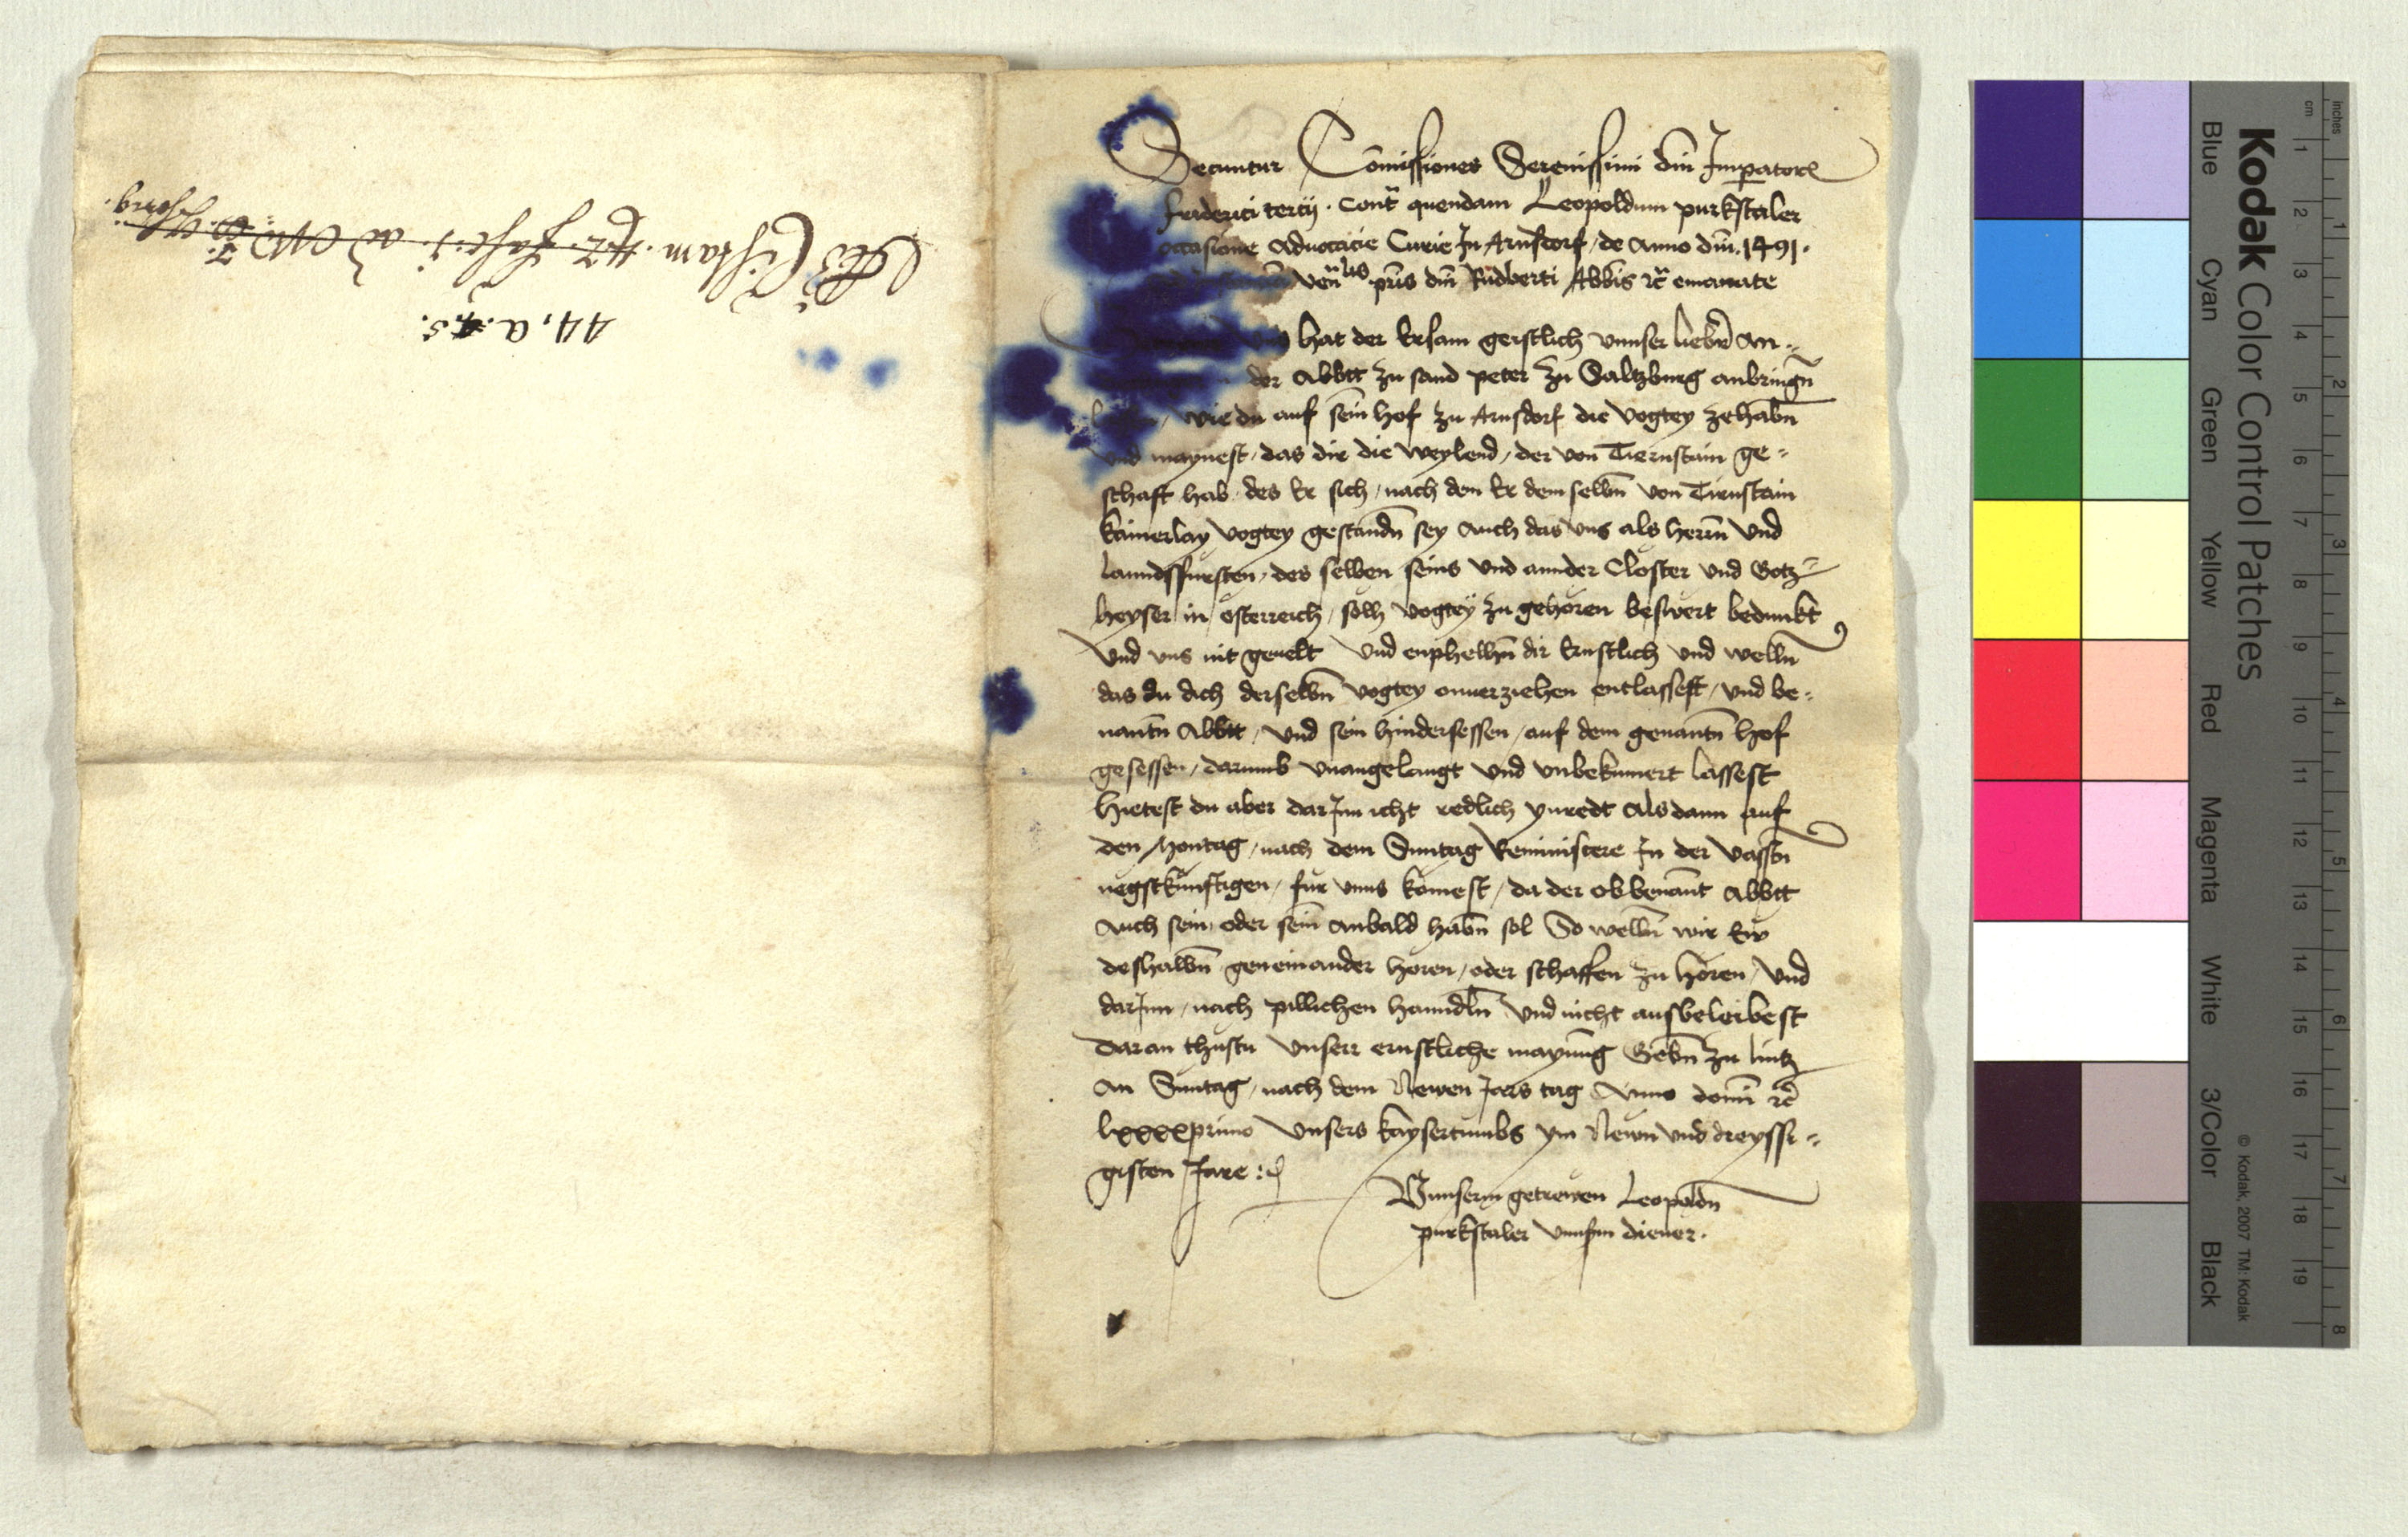 44. a. 45.
Secuntur Comissiones Serenissimi dni Impatoris
friderici tercij . Contra quendam Leopoldum purkstaler
occasione Aduocacie Curie In Arnstorf / de Anno dni . 1491 .
pris dni Rudberti Abbis emanate
vns hat der Ersam geistlich vnnser lieber An-
der Abbtt zu sand peter zu Saltzburg anbringn
wie du auf sein hof zu Arnsdorf die vogtey zehabn
vnd maynest / das dir die weylend / der von Tiernstain ge-
schafft hab / des Er sich / nach dem Er dem selbn von Tirnstain
kainerlay vogtey gestandn sey Auch das vns als herrn vnd
lanndssfursten / des selben seins vnd annder Closter vnd Gotz-
heyser in osterreich / solh vogtey zu gehoren beswert bedunkt
vnd vns nit geuelt vnd enphelhn dir Ernstlich vnd welln
das du dich derselbn vogtey onuerziehen entlassest / vnd be-
nantn Abbtt / vnd sein hindersessen / auf dem genantn hof
gesessen / darumb vnangelangt vnd vnbekumert lassest
Hietest du aber darInn icht redlich ynredt Als dann auf
den Montag / nach dem Sunntag Reministere In der vasstn
negstkunftigen / fur vnns komest / da der obbenant Abbtt
Auch sein / oder sein Anbald habn sol So welln wir Ew
deshalbn geneinander horen / oder schaffen zu horen / vnd
darInn / nach pillichen hanndln vnd nicht ausbeleibest
Daran thustu vnserr ernstliche maynung Gebn zu lintz
An Suntag / nach dem Newen Jars tag Anno domi rc
lxxxxprimo vnsers kaysertumbs ym Newn vnd dreyssi-
gisten Jare :
Vnnserm getrewen Leopoldn
purkstaler vnnsrm diener .
Kodak Color Control Patches
Blue Cyan Green Yellow Red Magenta White 3/Color Black
© Kodak, 2007 TM: Kodak
inches
cm
1 2 3 4 5 6 7 8
1 2 3 4 5 6 7 8 9 10 11 12 13 14 15 16 17 18 19